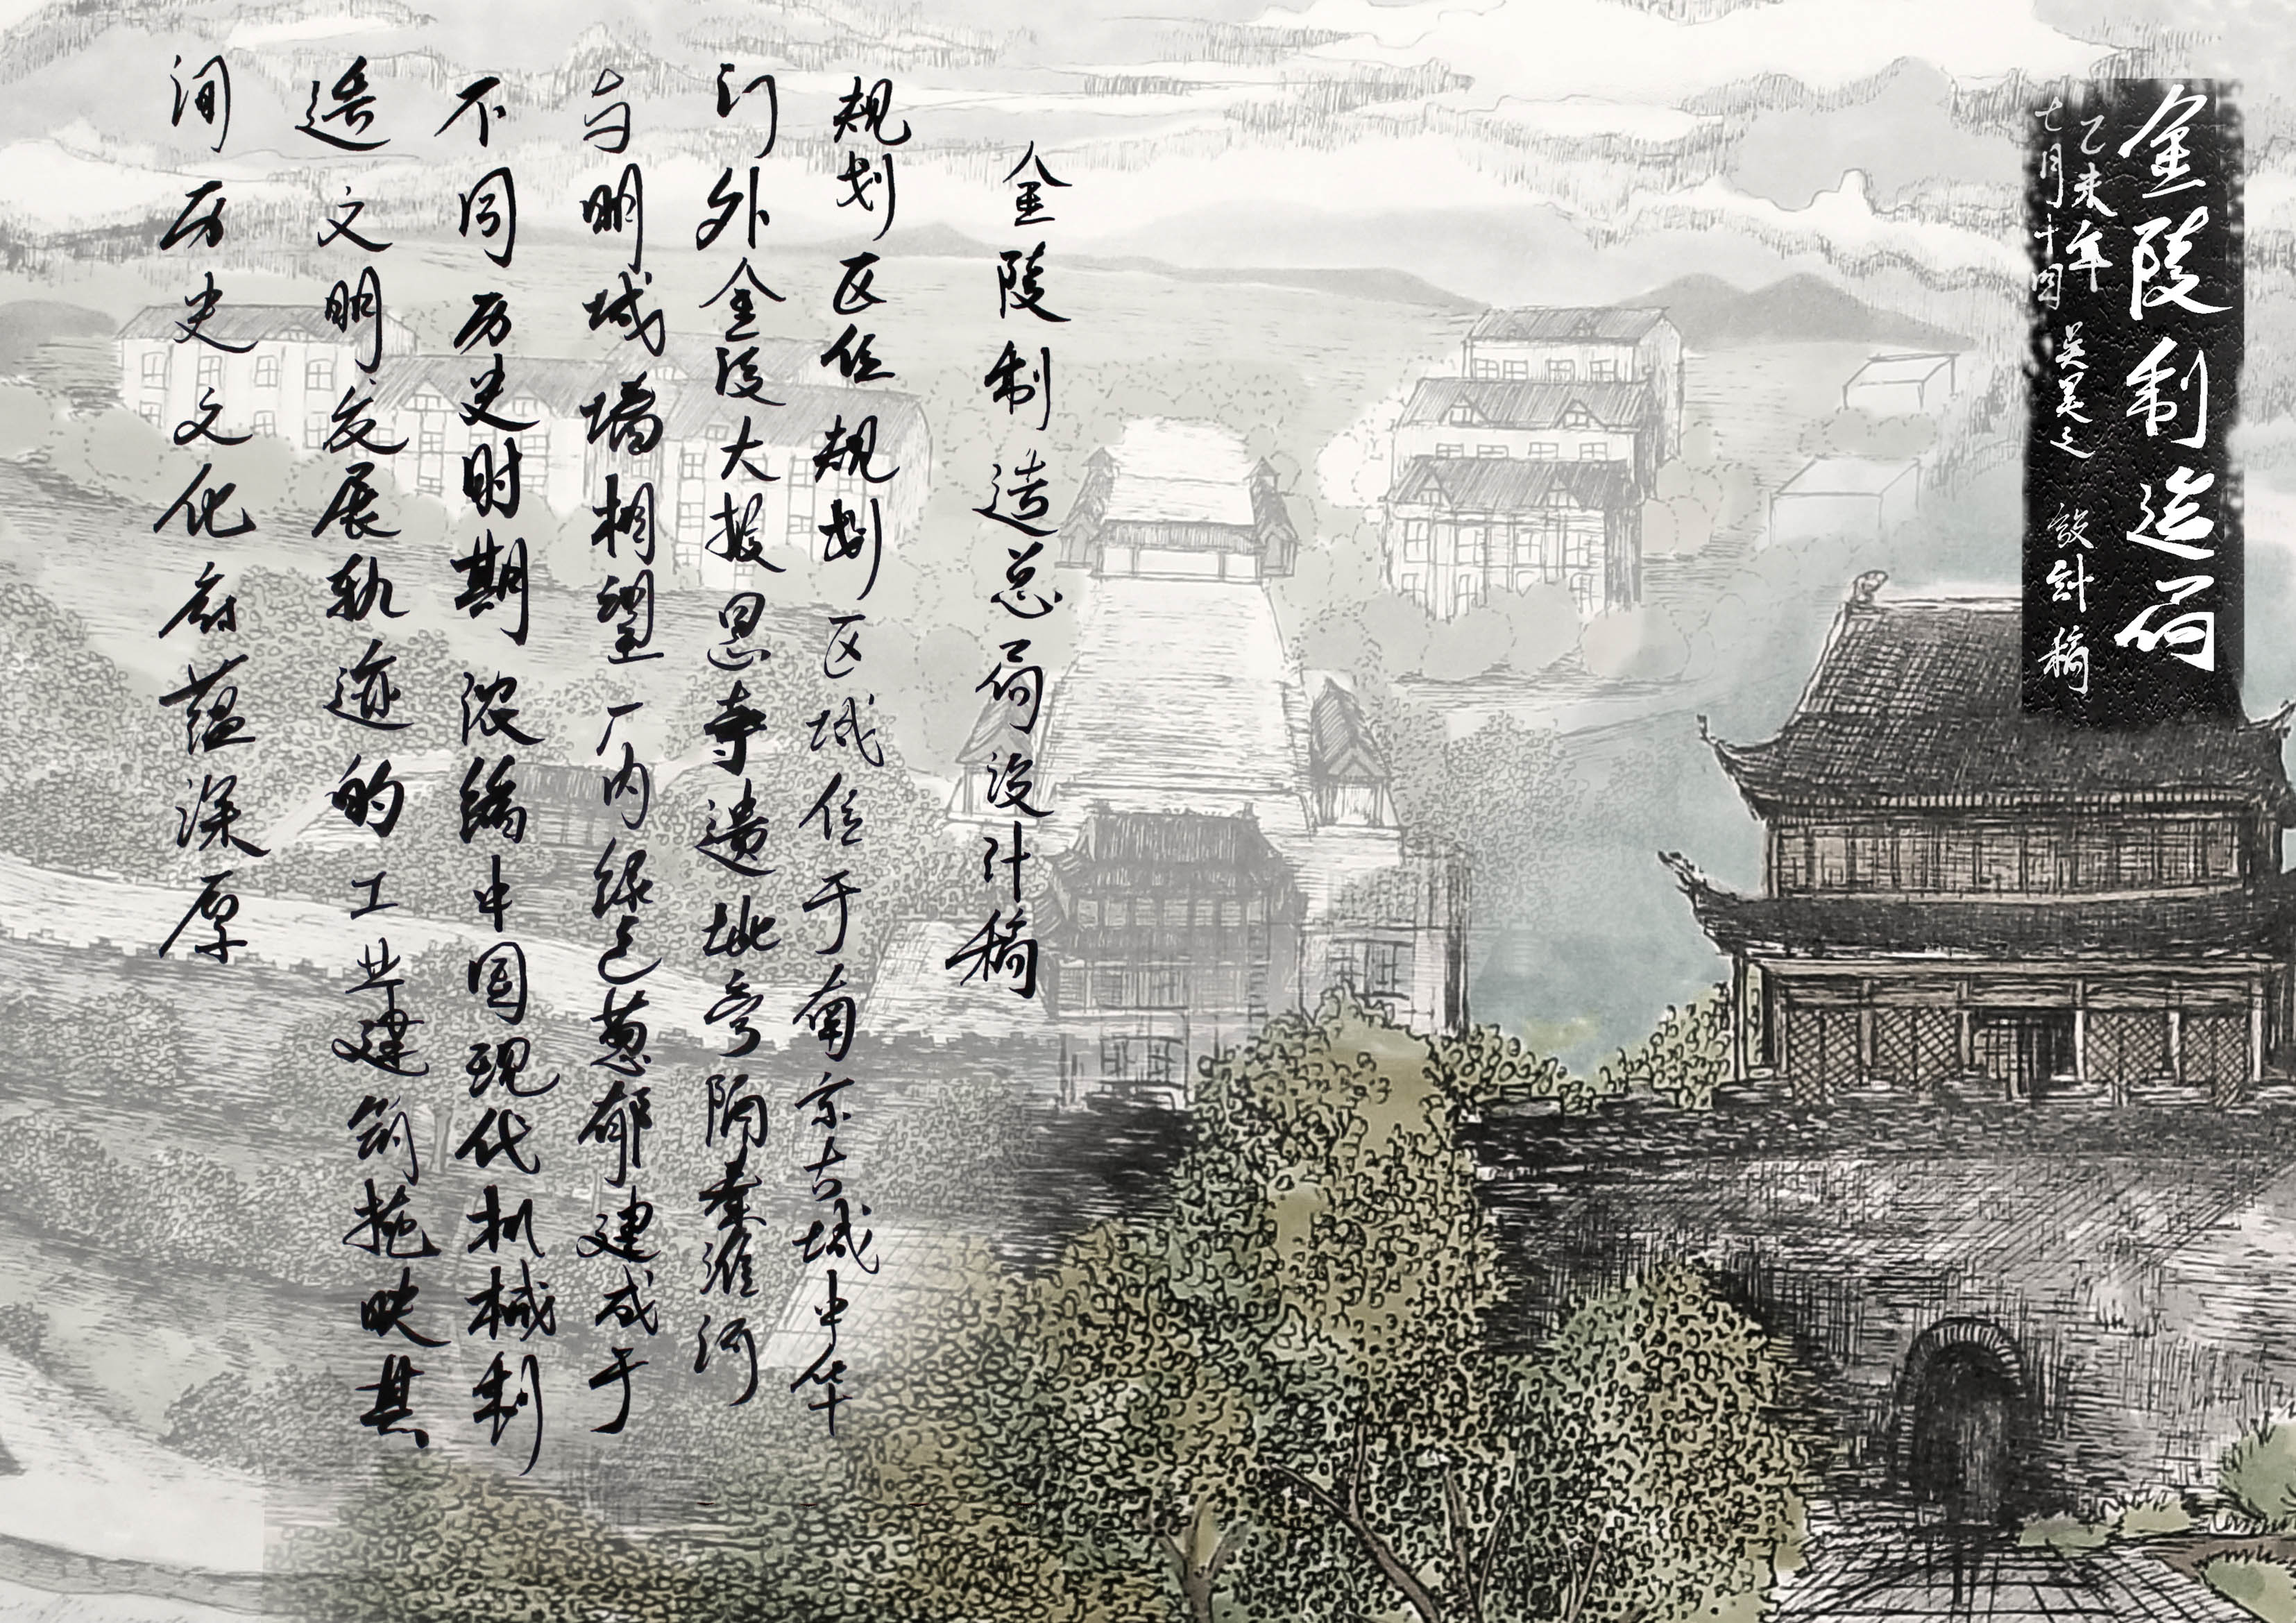 金陵制造局
乙未年
七月十四
吴昊之 設計稿
金陵制造总局设计稿
规划区位 规划区域位于南京古城中华
门外金陵大报恩寺遗址旁隔秦淮河
与明城墙相望厂内绿色葱郁建成于
不同历史时期浓缩中国现代机械制
造文明发展轨迹的工业建筑掩映其
间历史文化底蕴深厚